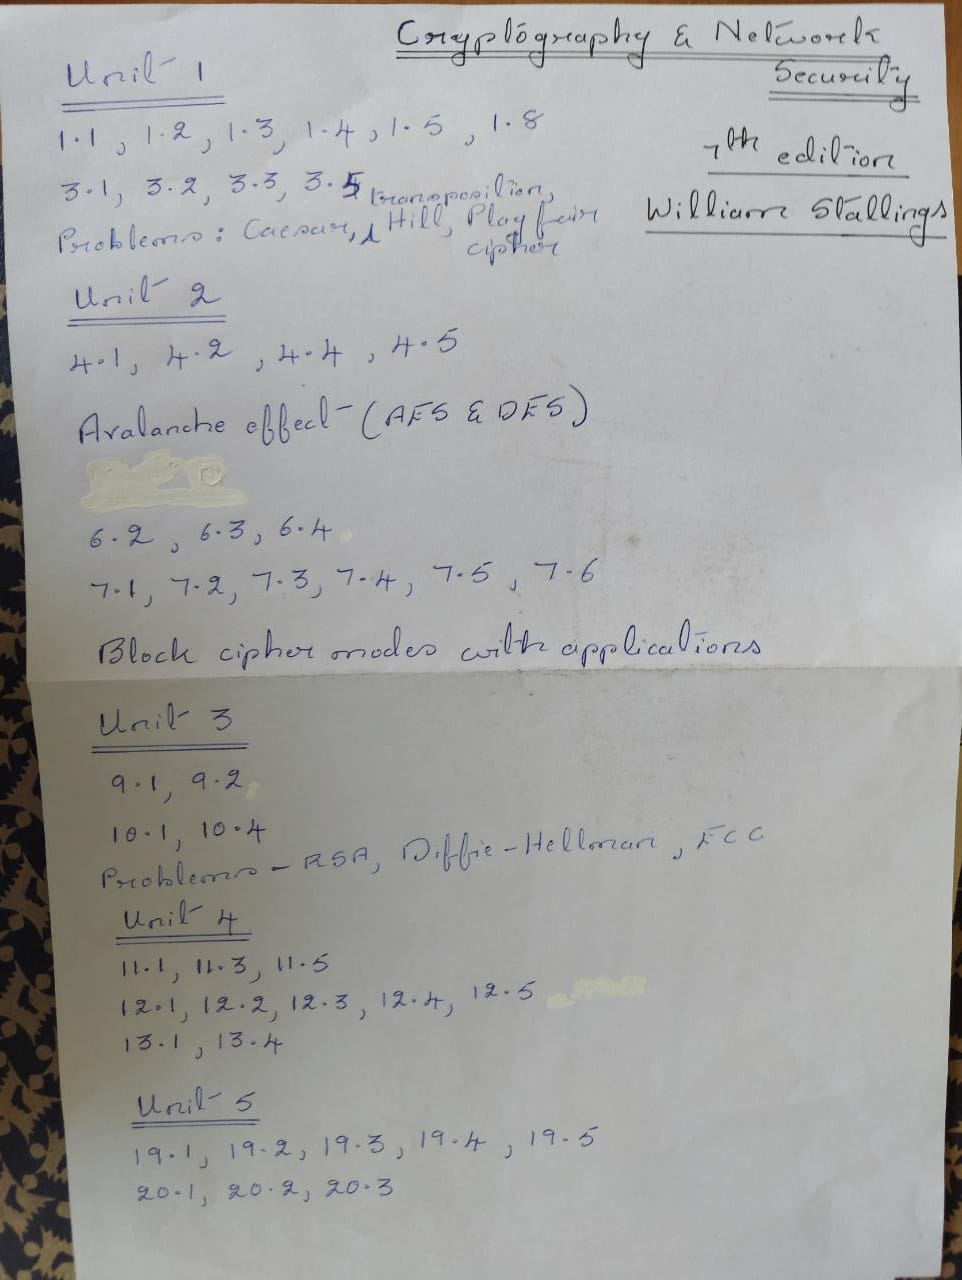 Cryptography & Network
Security
7th edition
William Stallings
Unit 1
1.1, 1.2, 1.3, 1.4, 1.5, 1.8
3.1, 3.2, 3.3, 3.5
transposition,
Problems: Caesar, Hill, Playfair
cipher
Unit 2
4.1, 4.2, 4.4, 4.5
Avalanche effect - (AES & DES)
6.2, 6.3, 6.4
7.1, 7.2, 7.3, 7.4, 7.5, 7.6
Block cipher modes with applications
Unit 3
9.1, 9.2
10.1, 10.4
Problems - RSA, Diffie-Hellman, ECC
Unit 4
11.1, 11.3, 11.5
12.1, 12.2, 12.3, 12.4, 12.5
13.1, 13.4
Unit 5
19.1, 19.2, 19.3, 19.4, 19.5
20.1, 20.2, 20.3